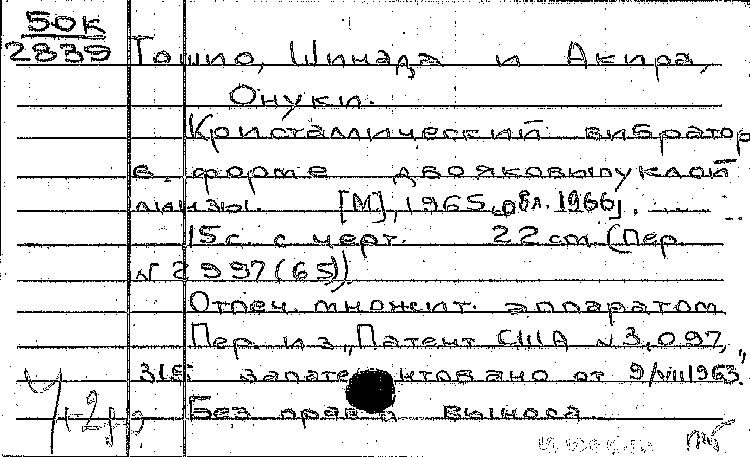 50К
2839
Тошио, Шинада и Акира,
Онуки.
Кристаллический вибратор
в форме двояковыпуклой
линзы. [М], 1965, обл. 1966].
15 с. с черт. 22 cm (Пер.
N 2997(65))
Отпеч. множит. аппаратом
Пер. из „Патент США N 3,097,
315 запатентовано от 9/VII 1963."
Без права выноса